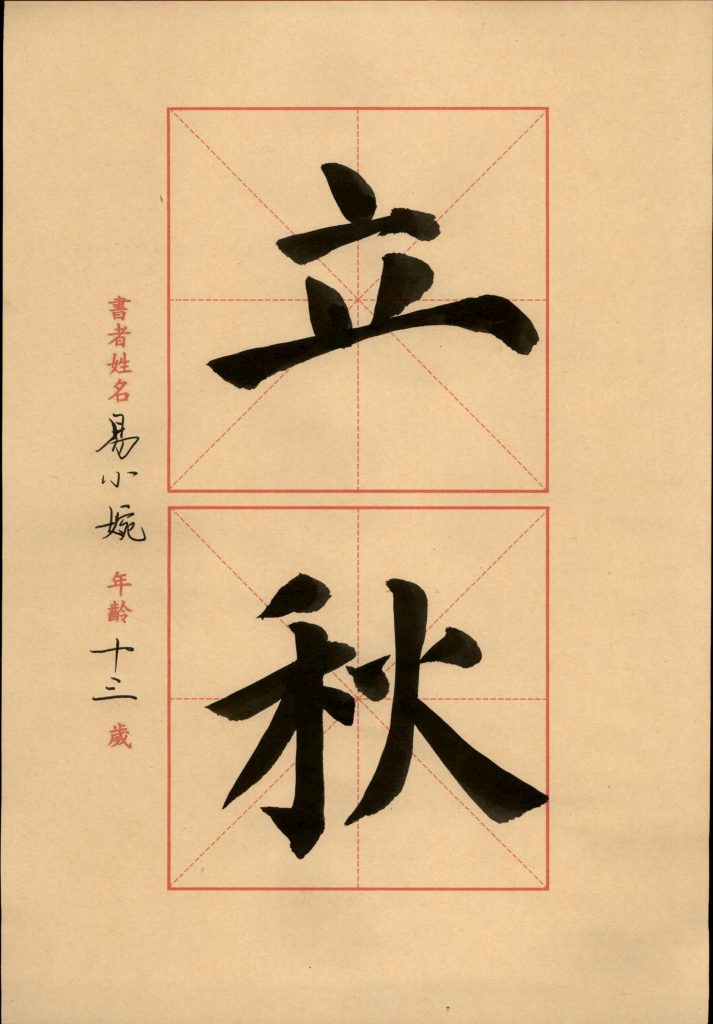 立秋
書者姓名 易小婉 年齡 十三 歲